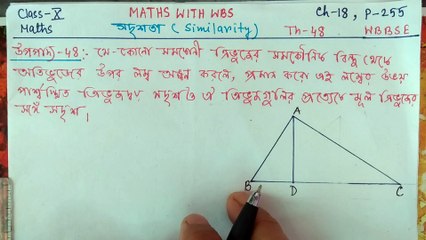 Class-X MATHS WITH WBS Ch-18, P-255
Maths সদৃশতা (Similarity) Th-48 WBBSE
উপপাদ্য-48: যে কোনো সমকোণী ত্রিভুজের সমকৌণিক বিন্দু থেকে
অতিভুজের উপর লম্ব অঙ্কন করলে, প্রমাণ করো এই লম্বের উভয়
পার্শ্বস্থিত ত্রিভুজদ্বয় সদৃশ ও ঐ ত্রিভুজগুলির প্রত্যেকে মূল ত্রিভুজের
সঙ্গে সদৃশ।
A
B D C